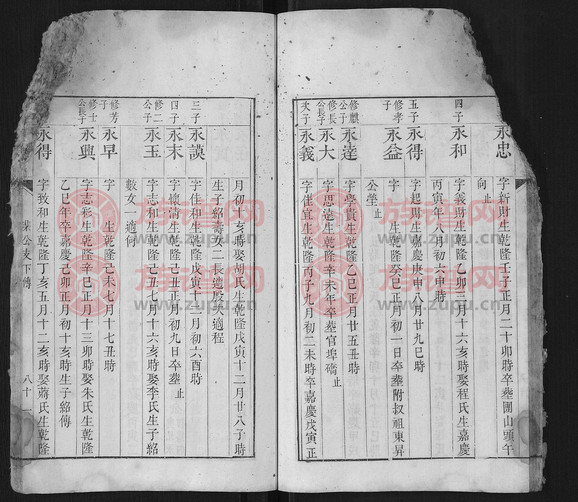 永忠
字新財生乾隆壬子正月二十卯時卒塟團山頭午
向止
四子
永和
字義財生乾隆乙卯月十六亥時娶程氏生嘉慶
丙寅年八月初六申時
五子
永得
字起財生嘉慶庚申八月廿九巳時
修孝子
永益
字 生乾隆癸巳正月初一日卒塟附叔祖東昇
公塋止
修麒公子
永達
字學貴生乾隆乙巳正月廿五丑時
修長公長子
永大
字思遠生乾隆辛未年卒塟官埠磅止
次子
永義
字佳宜生乾隆丙子九月初二未時卒嘉慶戊寅正
月初十亥時娶胡氏生乾隆戊寅十二月廿八子時
生子紹壽女二長適殷次適程
三子
永謨
字佳和生乾隆戊寅十二月初六酉時
四子
永末
字 清生乾隆己丑正月初九日卒塟止
修二公子
永玉
字志和生乾隆己丑七月十六亥時娶李氏生子紹
數女一適何
修芳子
永早
字 生乾隆己未七月十七丑時
修士公長子
永興
字志彩生乾隆辛巳正月十三卯時娶朱氏生乾隆
乙巳年卒嘉慶己卯正月初十亥時生子紹傳
永得
字致和生乾隆丁亥五月十二亥時娶蔣氏生乾隆
公支下傳
八十
族譜網
www.zupu.cn
族譜網
www.zupu.cn
族譜網
www.zupu.cn
族譜網
www.zupu.cn